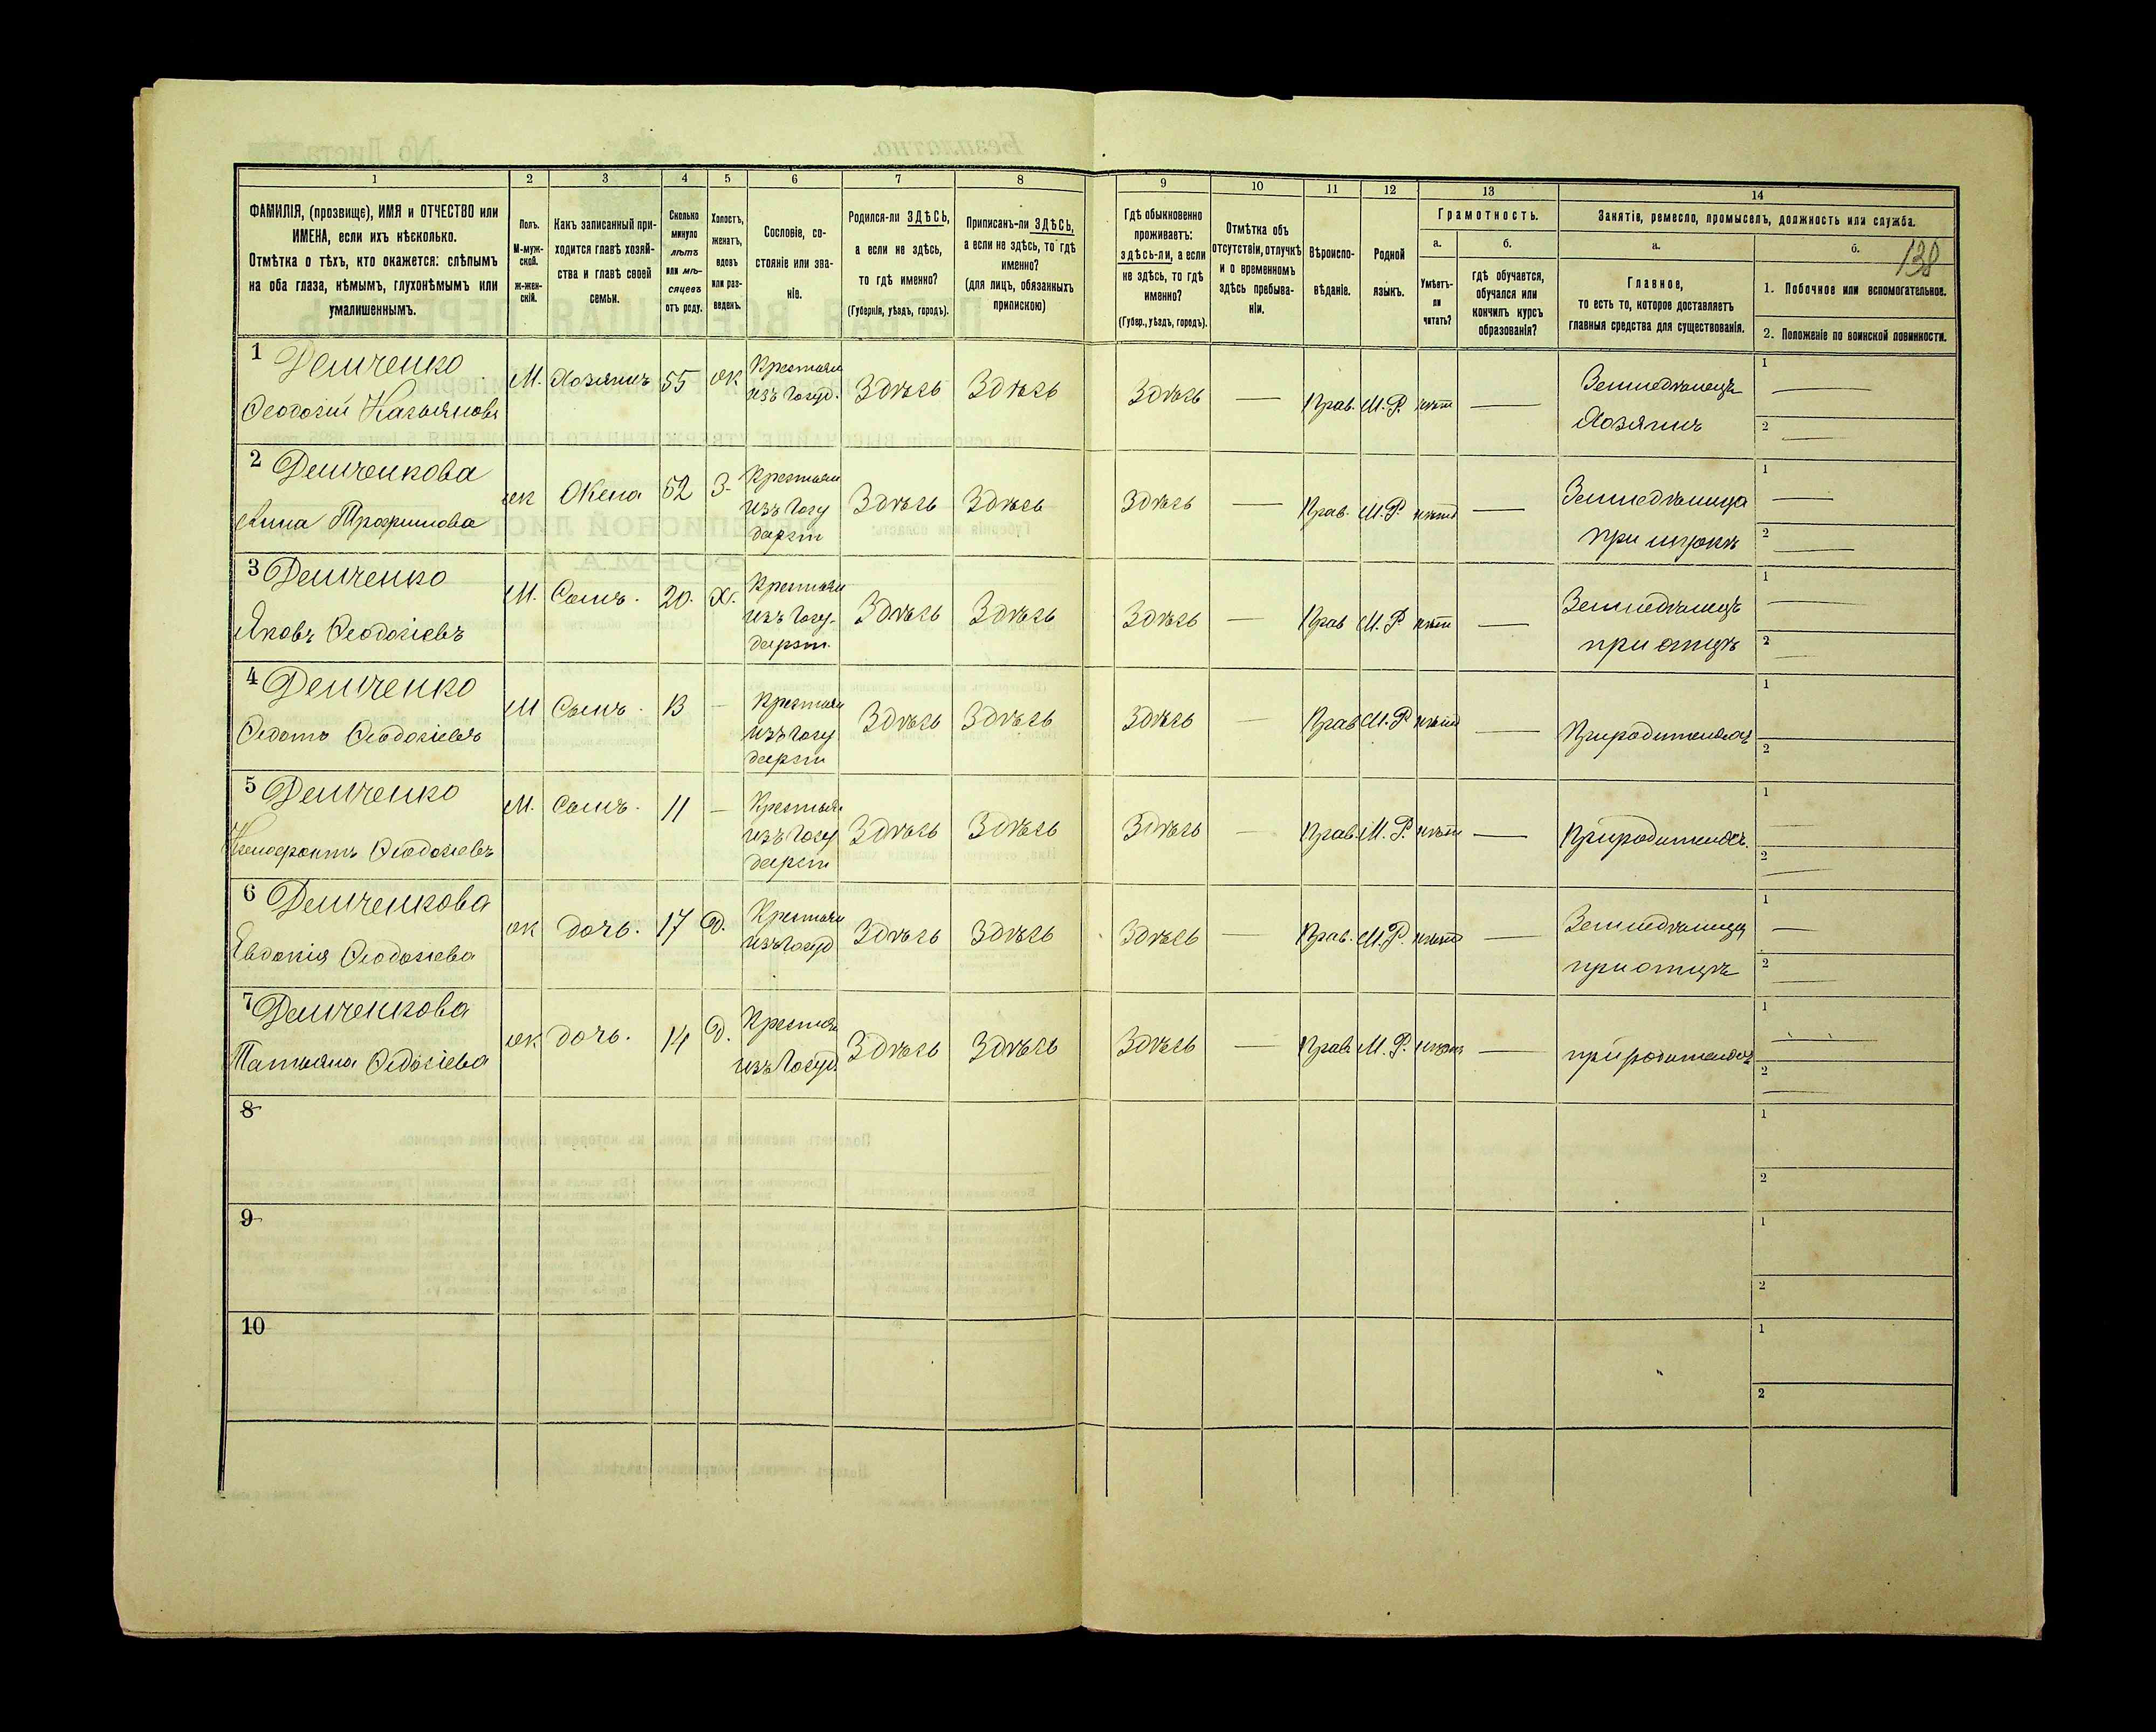 138
1 2 3 4 5 6 7 8 9 10 11 12 13 14
ФАМИЛІЯ, (прозвище), ИМЯ и ОТЧЕСТВО или
ИМЕНА, если ихъ нѣсколько.
Отмѣтка о тѣхъ, кто окажется: слѣпымъ
на оба глаза, нѣмымъ, глухонѣмымъ или
умалишеннымъ.
Полъ.
М-муж-
ской.
ж-жен-
скій.
Какъ записанный при-
ходится главѣ хозяй-
ства и главѣ своей
семьи.
Сколько
минуло
лѣтъ
или мѣ-
сяцевъ
отъ роду.
Холостъ,
женатъ,
вдовъ
или раз-
веденъ.
Сословіе, со-
стояніе или зва-
ніе.
Родился-ли ЗДѢСЬ,
а если не здѣсь,
то гдѣ именно?
(Губернія, уѣздъ, городъ).
Приписанъ-ли ЗДѢСЬ,
а если не здѣсь, то гдѣ
именно?
(для лицъ, обязанныхъ
припискою)
Гдѣ обыкновенно
проживаетъ:
здѣсь-ли, а если
не здѣсь, то гдѣ
именно?
(Губер., уѣздъ, городъ).
Отмѣтка объ
отсутствіи, отлучкѣ
и о временномъ
здѣсь пребыва-
ніи.
Вѣроиспо-
вѣданіе.
Родной
языкъ.
Грамотность.
а.
Умѣетъ-
ли
читать?
б.
гдѣ обучается,
обучался или
кончилъ курсъ
образованія?
Занятіе, ремесло, промыселъ, должность или служба.
а.
Главное,
то есть то, которое доставляетъ
главныя средства для существованія.
б.
1. Побочное или вспомогательное.
2. Положеніе по воинской повинности.
1 Демченко
Ѳеодосій Касьяновъ
М. Хозяинъ 55 ж Крестьян
изъ Госуд. Здѣсь Здѣсь Здѣсь — Прав. М. Р. нѣт — Земледѣлецъ
Хозяинъ
1 —
2 —
2 Демченкова
Анна Трофимова
ж Жена 52 З- Крестьян
изъ Госу
дарст Здѣсь Здѣсь Здѣсь — Прав. М. Р. нѣтъ — Земледѣлица
при мужѣ
1 —
2 —
3 Демченко
Яковъ Ѳеодосіевъ
М. Сынъ. 20. Х. Крестьян
изъ Госу-
дарст. Здѣсь Здѣсь Здѣсь — Прав М. Р. нѣт — Земледѣлецъ
при отцѣ
1 —
2 —
4 Демченко
Ѳедотъ Ѳеодосіевъ
М Сынъ. 13 — Крестьян
изъ Госу
дарст Здѣсь Здѣсь Здѣсь — Прав М. Р нѣтъ — При родителяхъ
1
2
5 Демченко
Ксенофонтъ Ѳеодосіевъ
М. Сынъ. 11 — Крестьян
изъ Госу
дарст Здѣсь Здѣсь Здѣсь — Прав. М. Р. нѣт — При родителяхъ.
1 —
2 —
6 Демченкова
Евдокія Ѳеодосіева
ж дочь. 17 Д. Крестьян
изъ Госуд Здѣсь Здѣсь Здѣсь — Прав. М. Р. нѣтъ — Земледѣлица
при отцѣ
1 —
2 —
7 Демченкова
Татьяна Ѳедосіева
ж дочь. 14 Д. Крестьян
изъ Госуд. Здѣсь Здѣсь Здѣсь — Прав. М. Р. нѣтъ — при родителяхъ
1 —
2 —
8
1
2
9
1
2
10
1
2